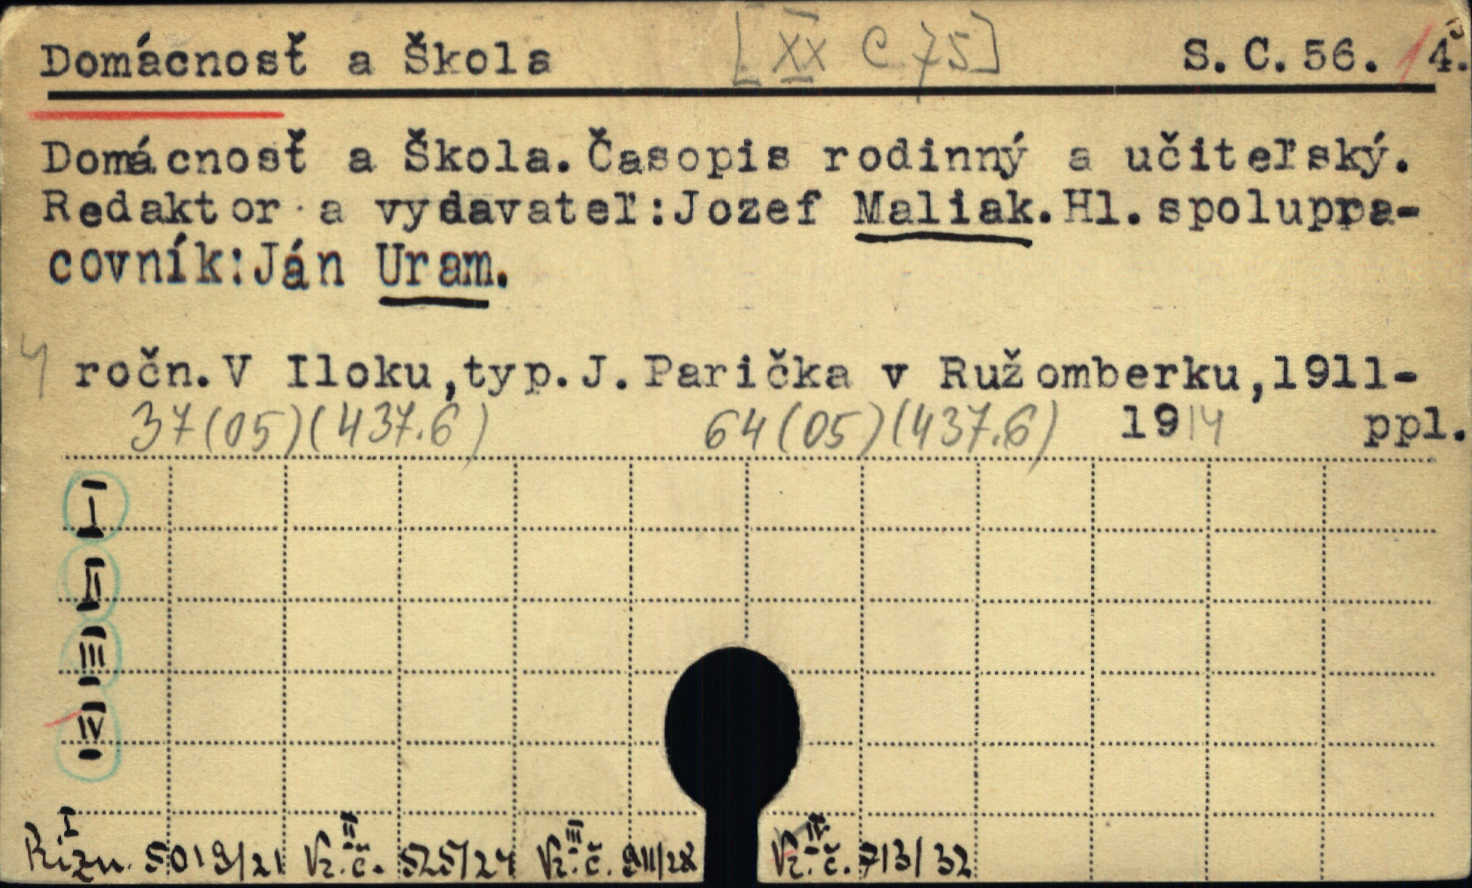 Domácnosť a Škola [XX C 75] S. C. 56. 4.
Domácnosť a Škola. Časopis rodinný a učiteľský.
Redaktor a vydavateľ: Jozef Maliak. Hl. spolupra-
covník: Ján Uram.
4 ročn. V Iloku, typ. J. Parička v Ružomberku, 1911-
37(05)(437.6) 64(05)(437.6) 1914 ppl.
I
II
III
IV
I II III IV
5019/21 Vz. č. 525/24 Vz. č. 911/28 Vz. č. 713/32